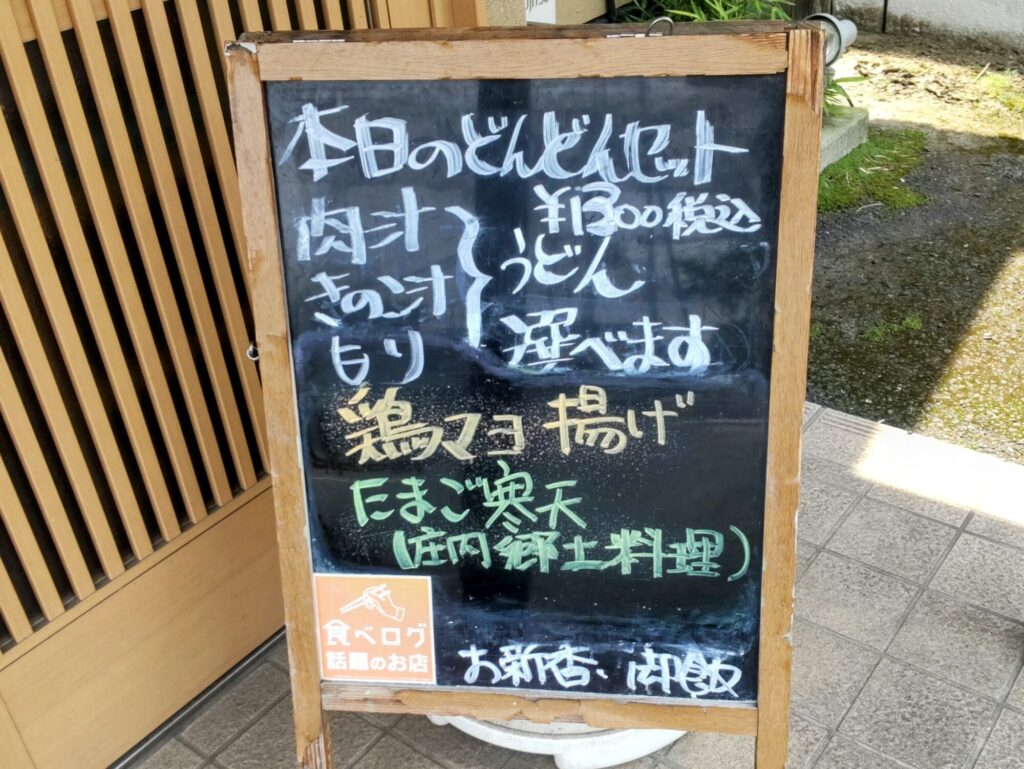 本日のどんどんセット
¥1300税込
肉汁
きのこ汁
もり
うどん
選べます
鶏マヨ揚げ
たまご寒天
(庄内郷土料理)
お新香、御飯
食べログ
話題のお店